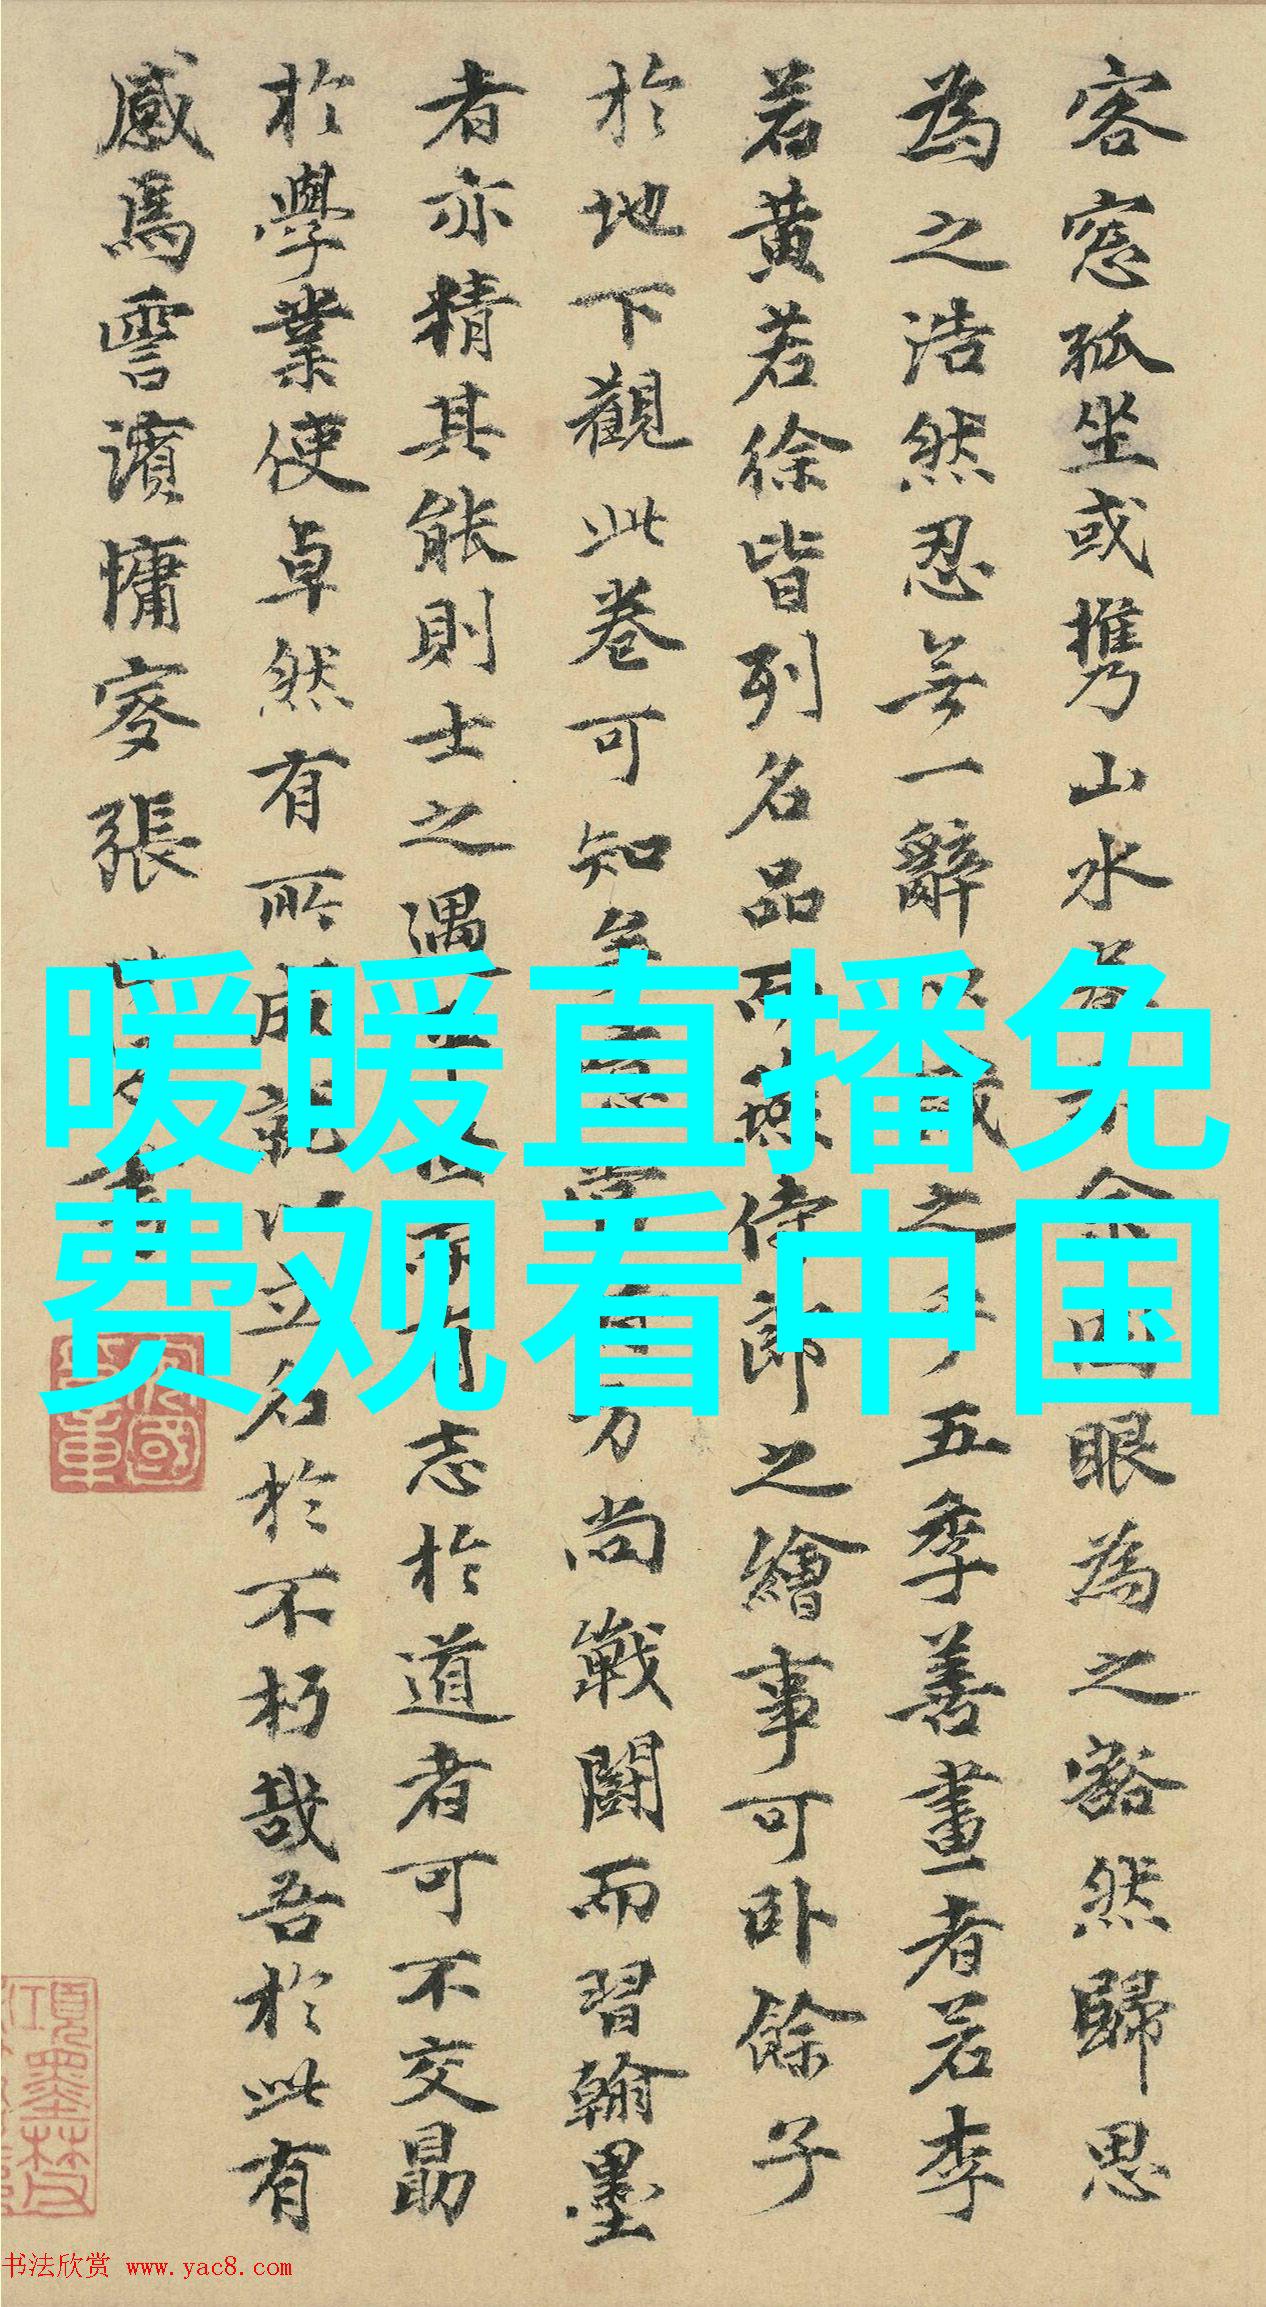 客窓孤坐或携山水
眼為之豁然歸思
為之浩然忍無一辭
五季善畫者若李
若黃若徐皆列名品
侍郎之繪事可卧餘子
於地下觀此卷可知
方尚戰鬭而習翰墨
者亦精其能則士之遇
志於道者可不交勗
於學業使卓然有所成就以立名於不朽哉吾於此有
感焉雲言濱慵叟張
暖暖直播免
费观看中国
书法欣赏 www.yac8.com